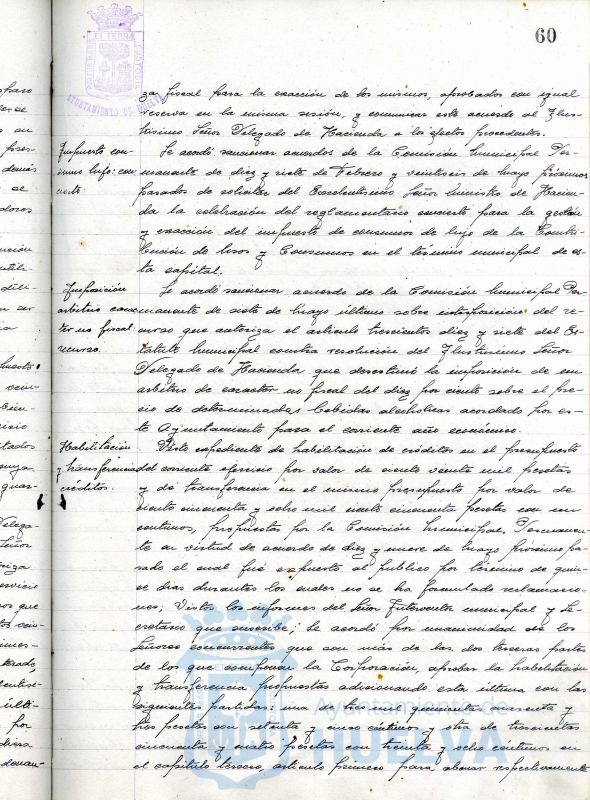 60
AYUNTAMIENTO DE HUELVA
za fiscal para la exacción de los mismos, aprobados con igual
reserva en la misma sesión, y comunicar este acuerdo al Ilus-
trísimo Señor Delegado de Hacienda a los efectos procedentes.
Impuesto con-
sumos lujo: con-
cierto.
Se acordó sancionar acuerdos de la Comisión Municipal Per-
manente de diez y siete de Febrero y veintiseis de Mayo próximos
pasados de solicitar del Excelentísimo Señor Ministro de Hacien-
da la celebración del reglamentario concierto para la gestión
y exacción del impuesto de consumos de lujo de la Contri-
bución de Usos y Consumos en el término municipal de es-
ta capital.
Imposición
arbitrio carac-
ter no fiscal:
recurso.
Se acordó sancionar acuerdo de la Comisión Municipal Per-
manente de siete de Mayo último sobre interposición del re-
curso que autoriza el artículo trescientos diez y siete del Es-
tatuto Municipal contra resolución del Ilustrísimo Señor
Delegado de Hacienda que desestimó la imposición de un
arbitrio de caracter no fiscal del diez por ciento sobre el pre-
cio de determinadas bebidas alcoholicas acordado por es-
te Ayuntamiento para el corriente año económico.
Habilitación
y transferencia
créditos.
Visto expediente de habilitación de créditos en el presupuesto
del corriente ejercicio por valor de ciento veinte mil pesetas
y de transferencia en el mismo presupuesto por valor de
ciento cincuenta y ocho mil ciento cincuenta pesetas con un
centimos, propuestas por la Comisión Municipal Permanen-
te en virtud de acuerdo de diez y nueve de Mayo próximo pa-
sado el cual fué expuesto al publico por término de quin-
ce dias durantes los cuales no se ha formulado reclamacio-
nes; Vistos los informes del Señor Interventor municipal y Se-
cretario que suscribe; Se acordó por unanimidad de los
Señores concurrentes que son más de las dos terceras partes
de los que componen la Corporación, aprobar la habilitación
y transferencia propuestas adicionando esta última con las
siguientes partidas: una de tres mil quinientas cuarenta y
tres pesetas con setenta y cinco céntimos y otra de trescientas
cincuenta y cuatro pesetas con treinta y ocho centimos en
el capítulo tercero, artículo primero para abonar respectivamente
Ayuntamiento de
HUELVA